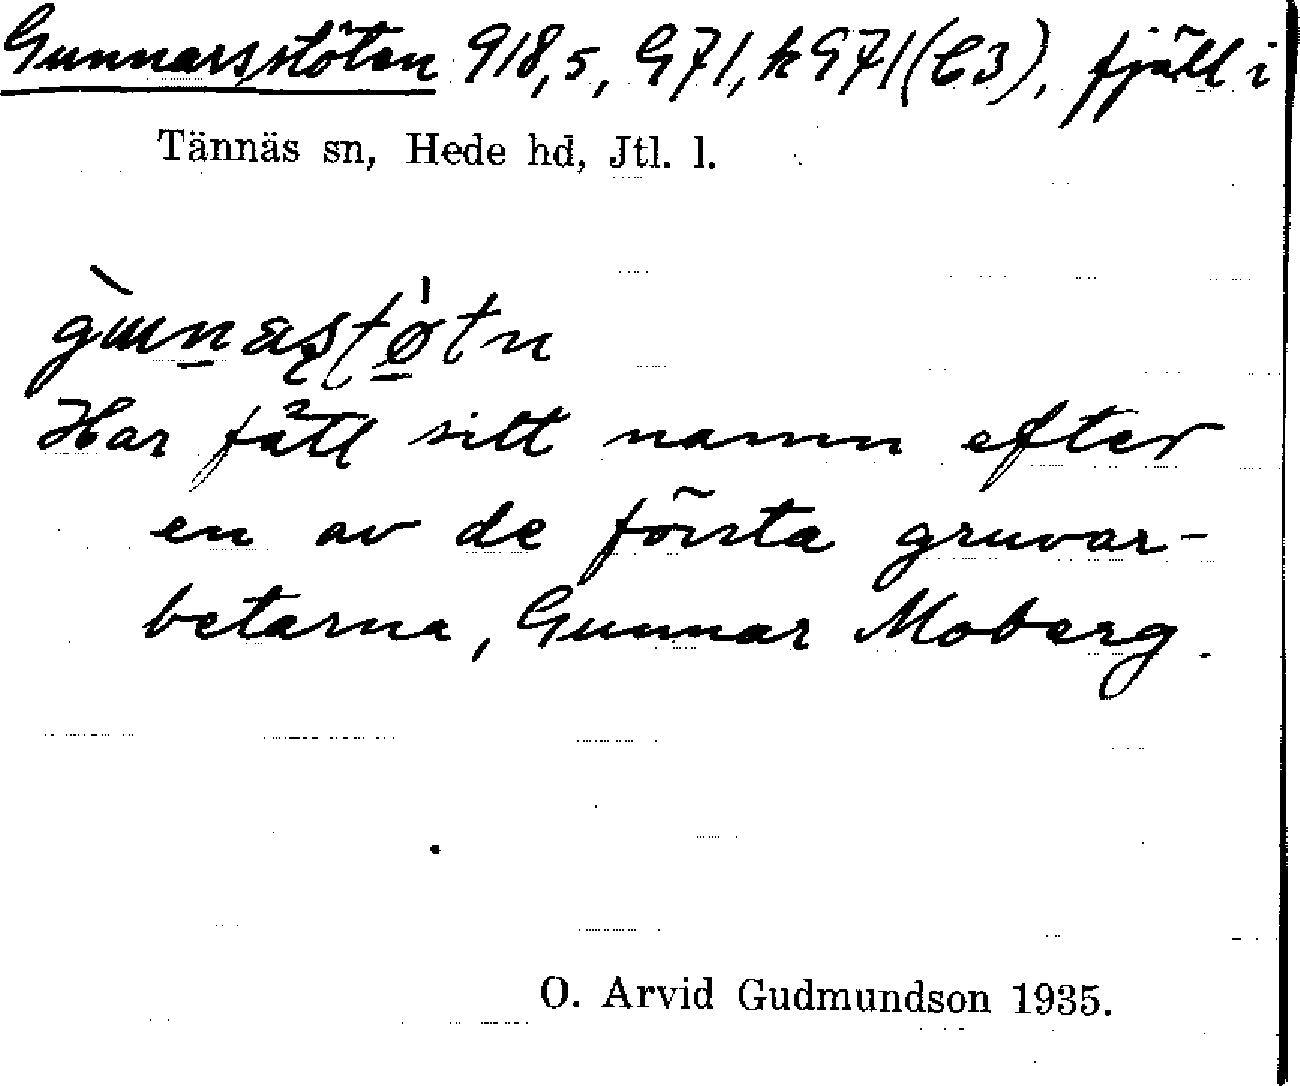 Gunnarsstöten 918,5, G71, k G71 (C3), fjäll i
Tännäs sn, Hede hd, Jtl. l.
Har fått sitt namn efter
en av de första gruvar-
betarna, Gunnar Moberg.
O. Arvid Gudmundson 1935.